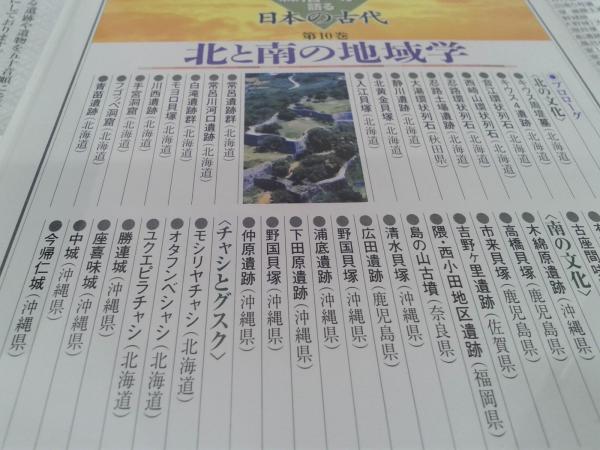 語る
日本の古代
第10巻
北と南の地域学
●プロローグ
〈北の文化〉
キウス周堤墓(北海道)
キウス4遺跡(北海道)
●鷲ノ木環状列石(北海道)
●西崎山環状列石(北海道)
●忍路環状列石(北海道)
●忍路土場遺跡(北海道)
●大湯環状列石(秋田県)
●静川遺跡(北海道)
●北黄金貝塚(北海道)
●入江貝塚(北海道)
●常呂遺跡群(北海道)
●常呂川河口遺跡(北海道)
●白滝遺跡群(北海道)
●モヨロ貝塚(北海道)
●川西遺跡(北海道)
●手宮洞窟(北海道)
●フゴッペ洞窟(北海道)
●青苗遺跡(北海道)
〈南の文化〉
●木綿原遺跡(沖縄県)
●高橋貝塚(鹿児島県)
●市来貝塚(鹿児島県)
●吉野ヶ里遺跡(佐賀県)
●隈・西小田地区遺跡(福岡県)
●島の山古墳(奈良県)
●清水貝塚(沖縄県)
●広田遺跡(鹿児島県)
●野国貝塚(沖縄県)
●浦底遺跡(沖縄県)
●下田原遺跡(沖縄県)
●野国貝塚(沖縄県)
●仲原遺跡(沖縄県)
〈チャシとグスク〉
●モシリヤチャシ(北海道)
●オタフンベチャシ(北海道)
●ユクエピラチャシ(北海道)
●勝連城(沖縄県)
●座喜味城(沖縄県)
●中城(沖縄県)
●今帰仁城(沖縄県)